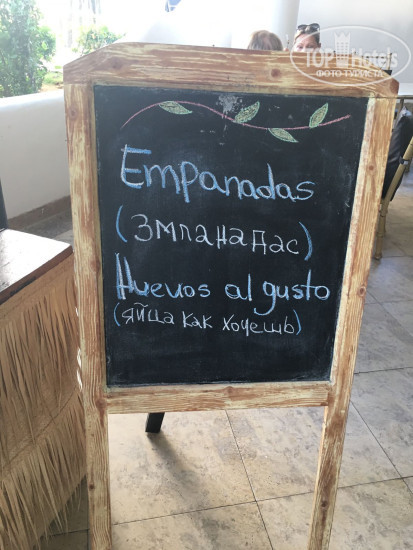 TopHotels
ФОТО ТУРИСТА
Empanadas
(Змпанадас)
Huevos al gusto
(яйца как хочешь)